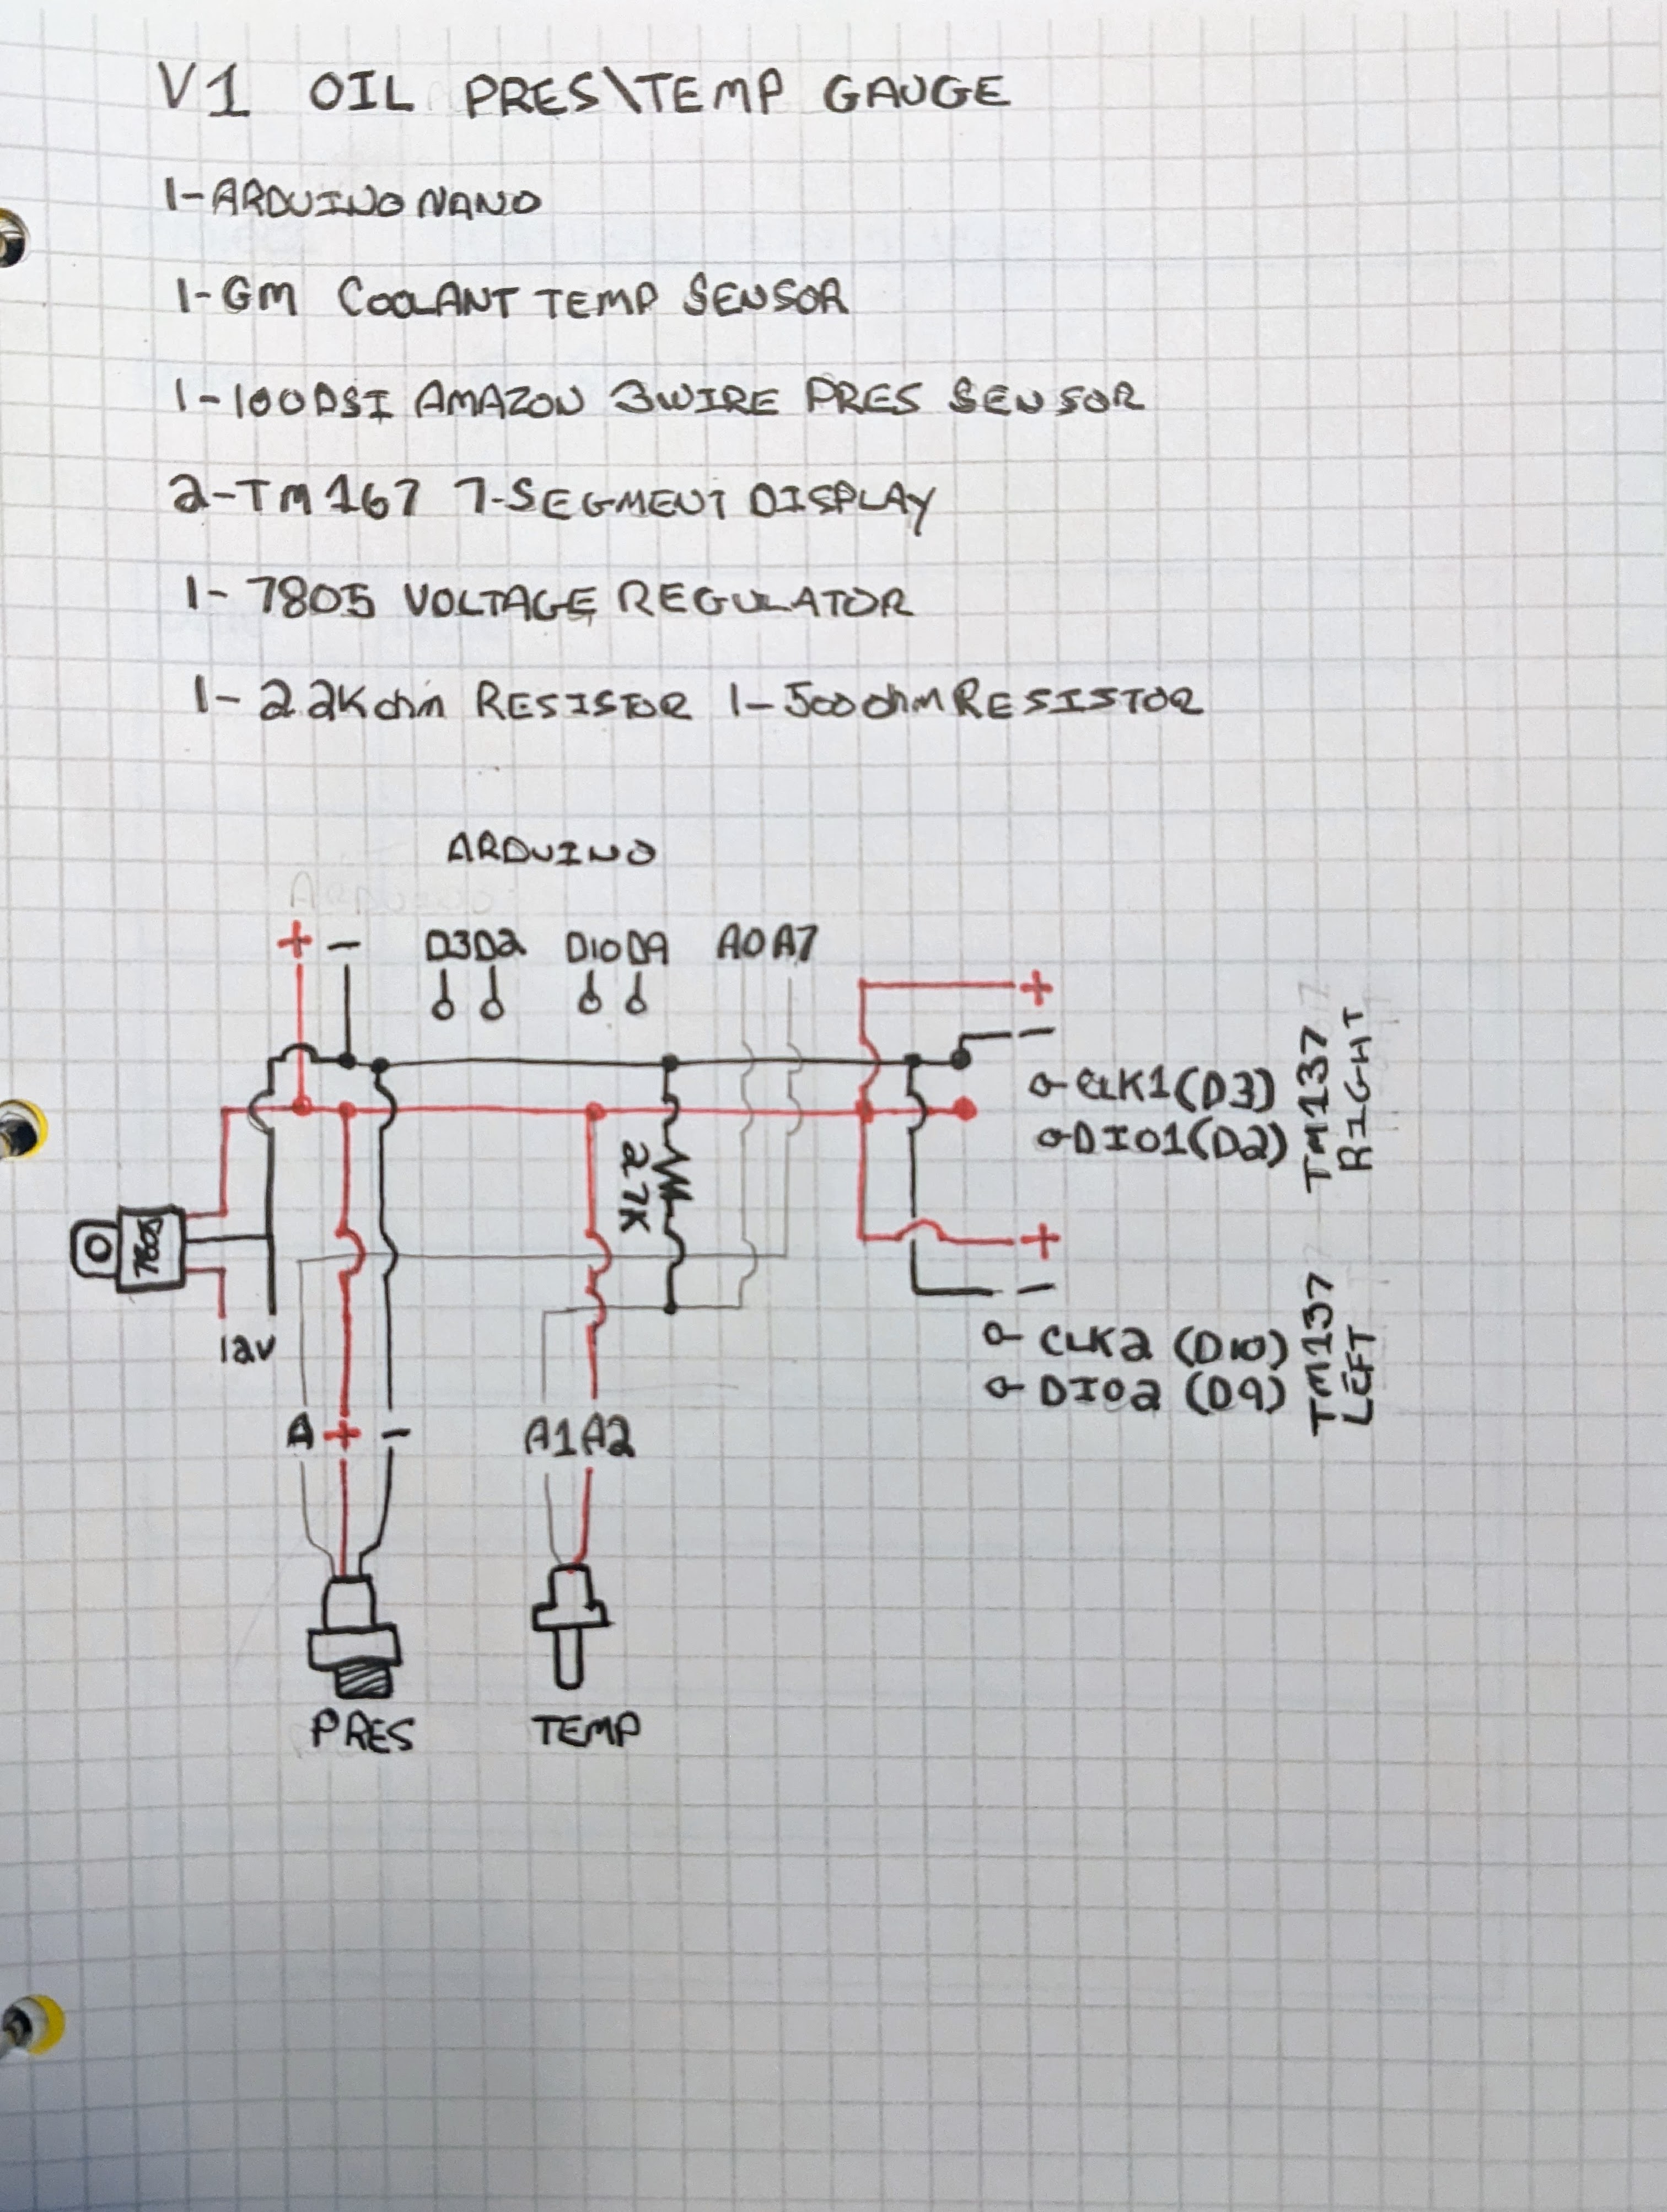 V1 OIL PRES\TEMP GAUGE
1-ARDUINO NANO
1-GM COOLANT TEMP SENSOR
1-100PSI AMAZON 3WIRE PRES SENSOR
2-TM167 7-SEGMENT DISPLAY
1-7805 VOLTAGE REGULATOR
1-22Kohm RESISTOR 1-500ohm RESISTOR
ARDUINO
ARDUINO
+ - D3 D2 D10 D9 A0 A7
+
-
CLK1 (D3)
DIO1 (D2)
TM137
RIGHT
27K
7805
12V
+
-
CLK2 (D10)
DIO2 (D9)
TM137
LEFT
A + - A1 A2
PRES TEMP